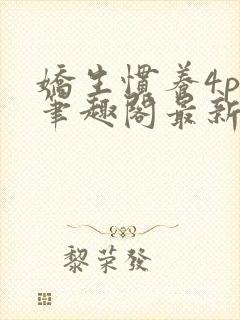 嬌生慣養4p
筆趣閣最新
黎荣發